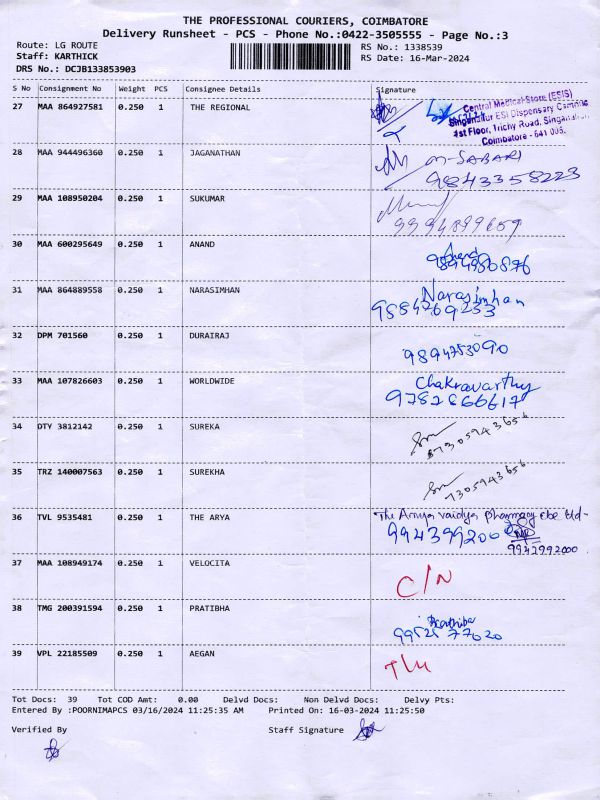 THE PROFESSIONAL COURIERS, COIMBATORE
Delivery Runsheet - PCS - Phone No.:0422-3505555 - Page No.:3
Route: LG ROUTE
RS No.: 1338539
Staff: KARTHICK
RS Date: 16-Mar-2024
DRS No.: DCJB133853903
S No Consignment No Weight PCS Consignee Details Signature
27 MAA 864927581 0.250 1 THE REGIONAL
Central Medical Store (ESIS)
Singanallur ESI Dispensary Campus
1st Floor, Trichy Road, Singanallur
Coimbatore - 641 005.
28 MAA 944496360 0.250 1 JAGANATHAN M-SABARI
9843358223
29 MAA 108950204 0.250 1 SUKUMAR
9994899659
30 MAA 600295649 0.250 1 ANAND Anand
31 MAA 864889558 0.250 1 NARASIMHAN Narasimhan
9884269233
32 DPM 701560 0.250 1 DURAIRAJ
9894753090
33 MAA 107826603 0.250 1 WORLDWIDE Chakravarthy
9787866617
34 DTY 3812142 0.250 1 SUREKA
35 TRZ 140007563 0.250 1 SUREKHA
7305943656
36 TVL 9535481 0.250 1 THE ARYA The Arya vaidya pharmacy cbe Ltd-
994399200
9942992000
37 MAA 108949174 0.250 1 VELOCITA C/N
38 TMG 200391594 0.250 1 PRATIBHA Prathiba
9952577020
39 VPL 22185509 0.250 1 AEGAN
Tot Docs: 39 Tot COD Amt: 0.00 Delvd Docs: Non Delvd Docs: Delvy Pts:
Entered By :POORNIMAPCS 03/16/2024 11:25:35 AM Printed On: 16-03-2024 11:25:50
Verified By Staff Signature